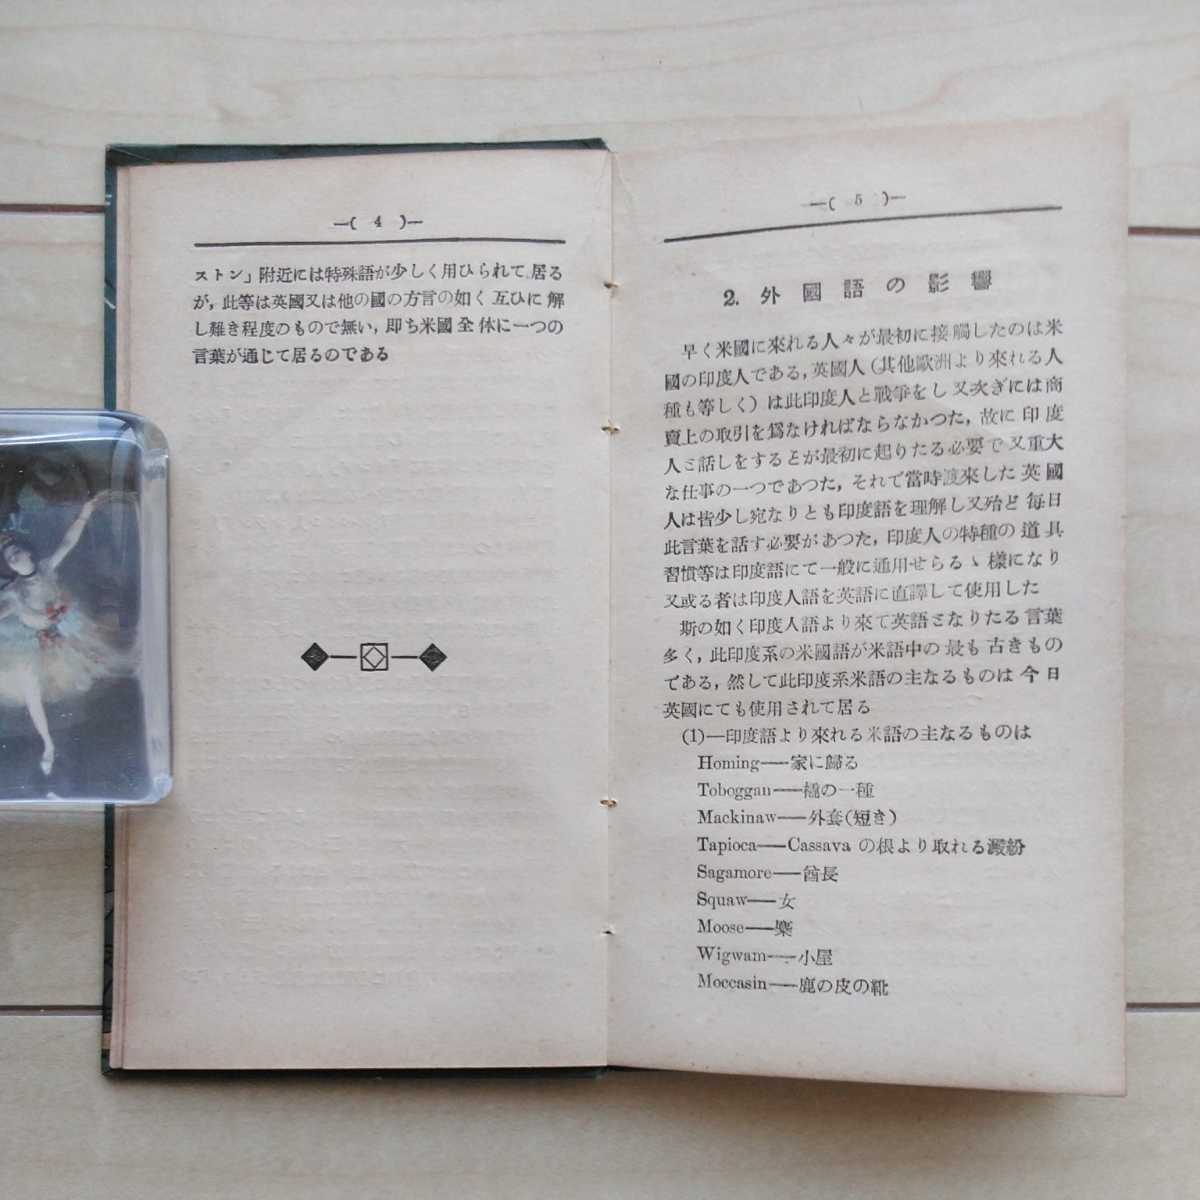 —( 4 )—
ストン」附近には特殊語が少しく用ひられて居る
が，此等は英國又は他の國の方言の如く互ひに解
し難き程度のもので無い，卽ち米國全体に一つの
言葉が通じて居るのである
—( 5 )—
2. 外國語の影響
早く米國に來れる人々が最初に接觸したのは米
國の印度人である，英國人（其他歐洲より來れる人
種も等しく）は此印度人と戰爭をし又次ぎには商
賣上の取引を爲なければならなかつた，故に印度
人と話しをするとが最初に起りたる必要で又重大
な仕事の一つであつた，それで當時渡來した英國
人は皆少し宛なりとも印度語を理解し又殆ど每日
此言葉を話す必要があつた，印度人の特種の道具
習慣等は印度語にて一般に通用せらるゝ樣になり
又或る者は印度人語を英語に直譯して使用した
斯の如く印度人語より來て英語となりたる言葉
多く，此印度系の米國語が米語中の最も古きもの
である，然して此印度系米語の主なるものは今日
英國にても使用されて居る
(1)—印度語より來れる米語の主なるものは
Homing——家に歸る
Toboggan——橇の一種
Mackinaw——外套（短き）
Tapioca——Cassava の根より取れる澱粉
Sagamore——酋長
Squaw——女
Moose——麋
Wigwam——小屋
Moccasin——鹿の皮の靴